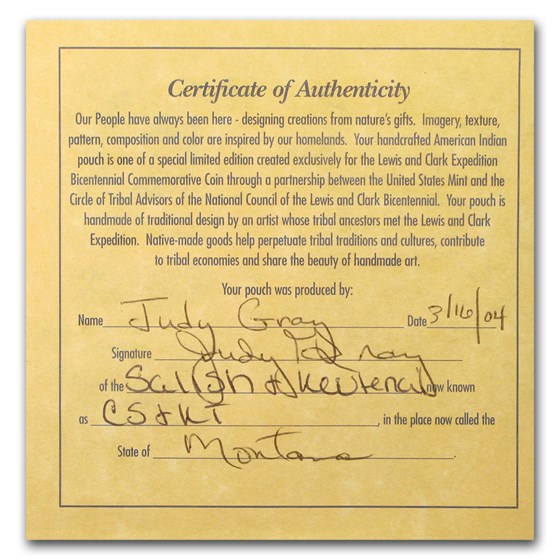 Certificate of Authenticity
Our People have always been here - designing creations from nature's gifts. Imagery, texture,
pattern, composition and color are inspired by our homelands. Your handcrafted American Indian
pouch is one of a special limited edition created exclusively for the Lewis and Clark Expedition
Bicentennial Commemorative Coin through a partnership between the United States Mint and the
Circle of Tribal Advisors of the National Council of the Lewis and Clark Bicentennial. Your pouch is
handmade of traditional design by an artist whose tribal ancestors met the Lewis and Clark
Expedition. Native-made goods help perpetuate tribal traditions and cultures, contribute
to tribal economies and share the beauty of handmade art.
Your pouch was produced by:
Name Judy Gray Date 3/16/04
Signature Judy Gray
of the Salish & Kootenai now known
as CS&KT, in the place now called the
State of Montana.